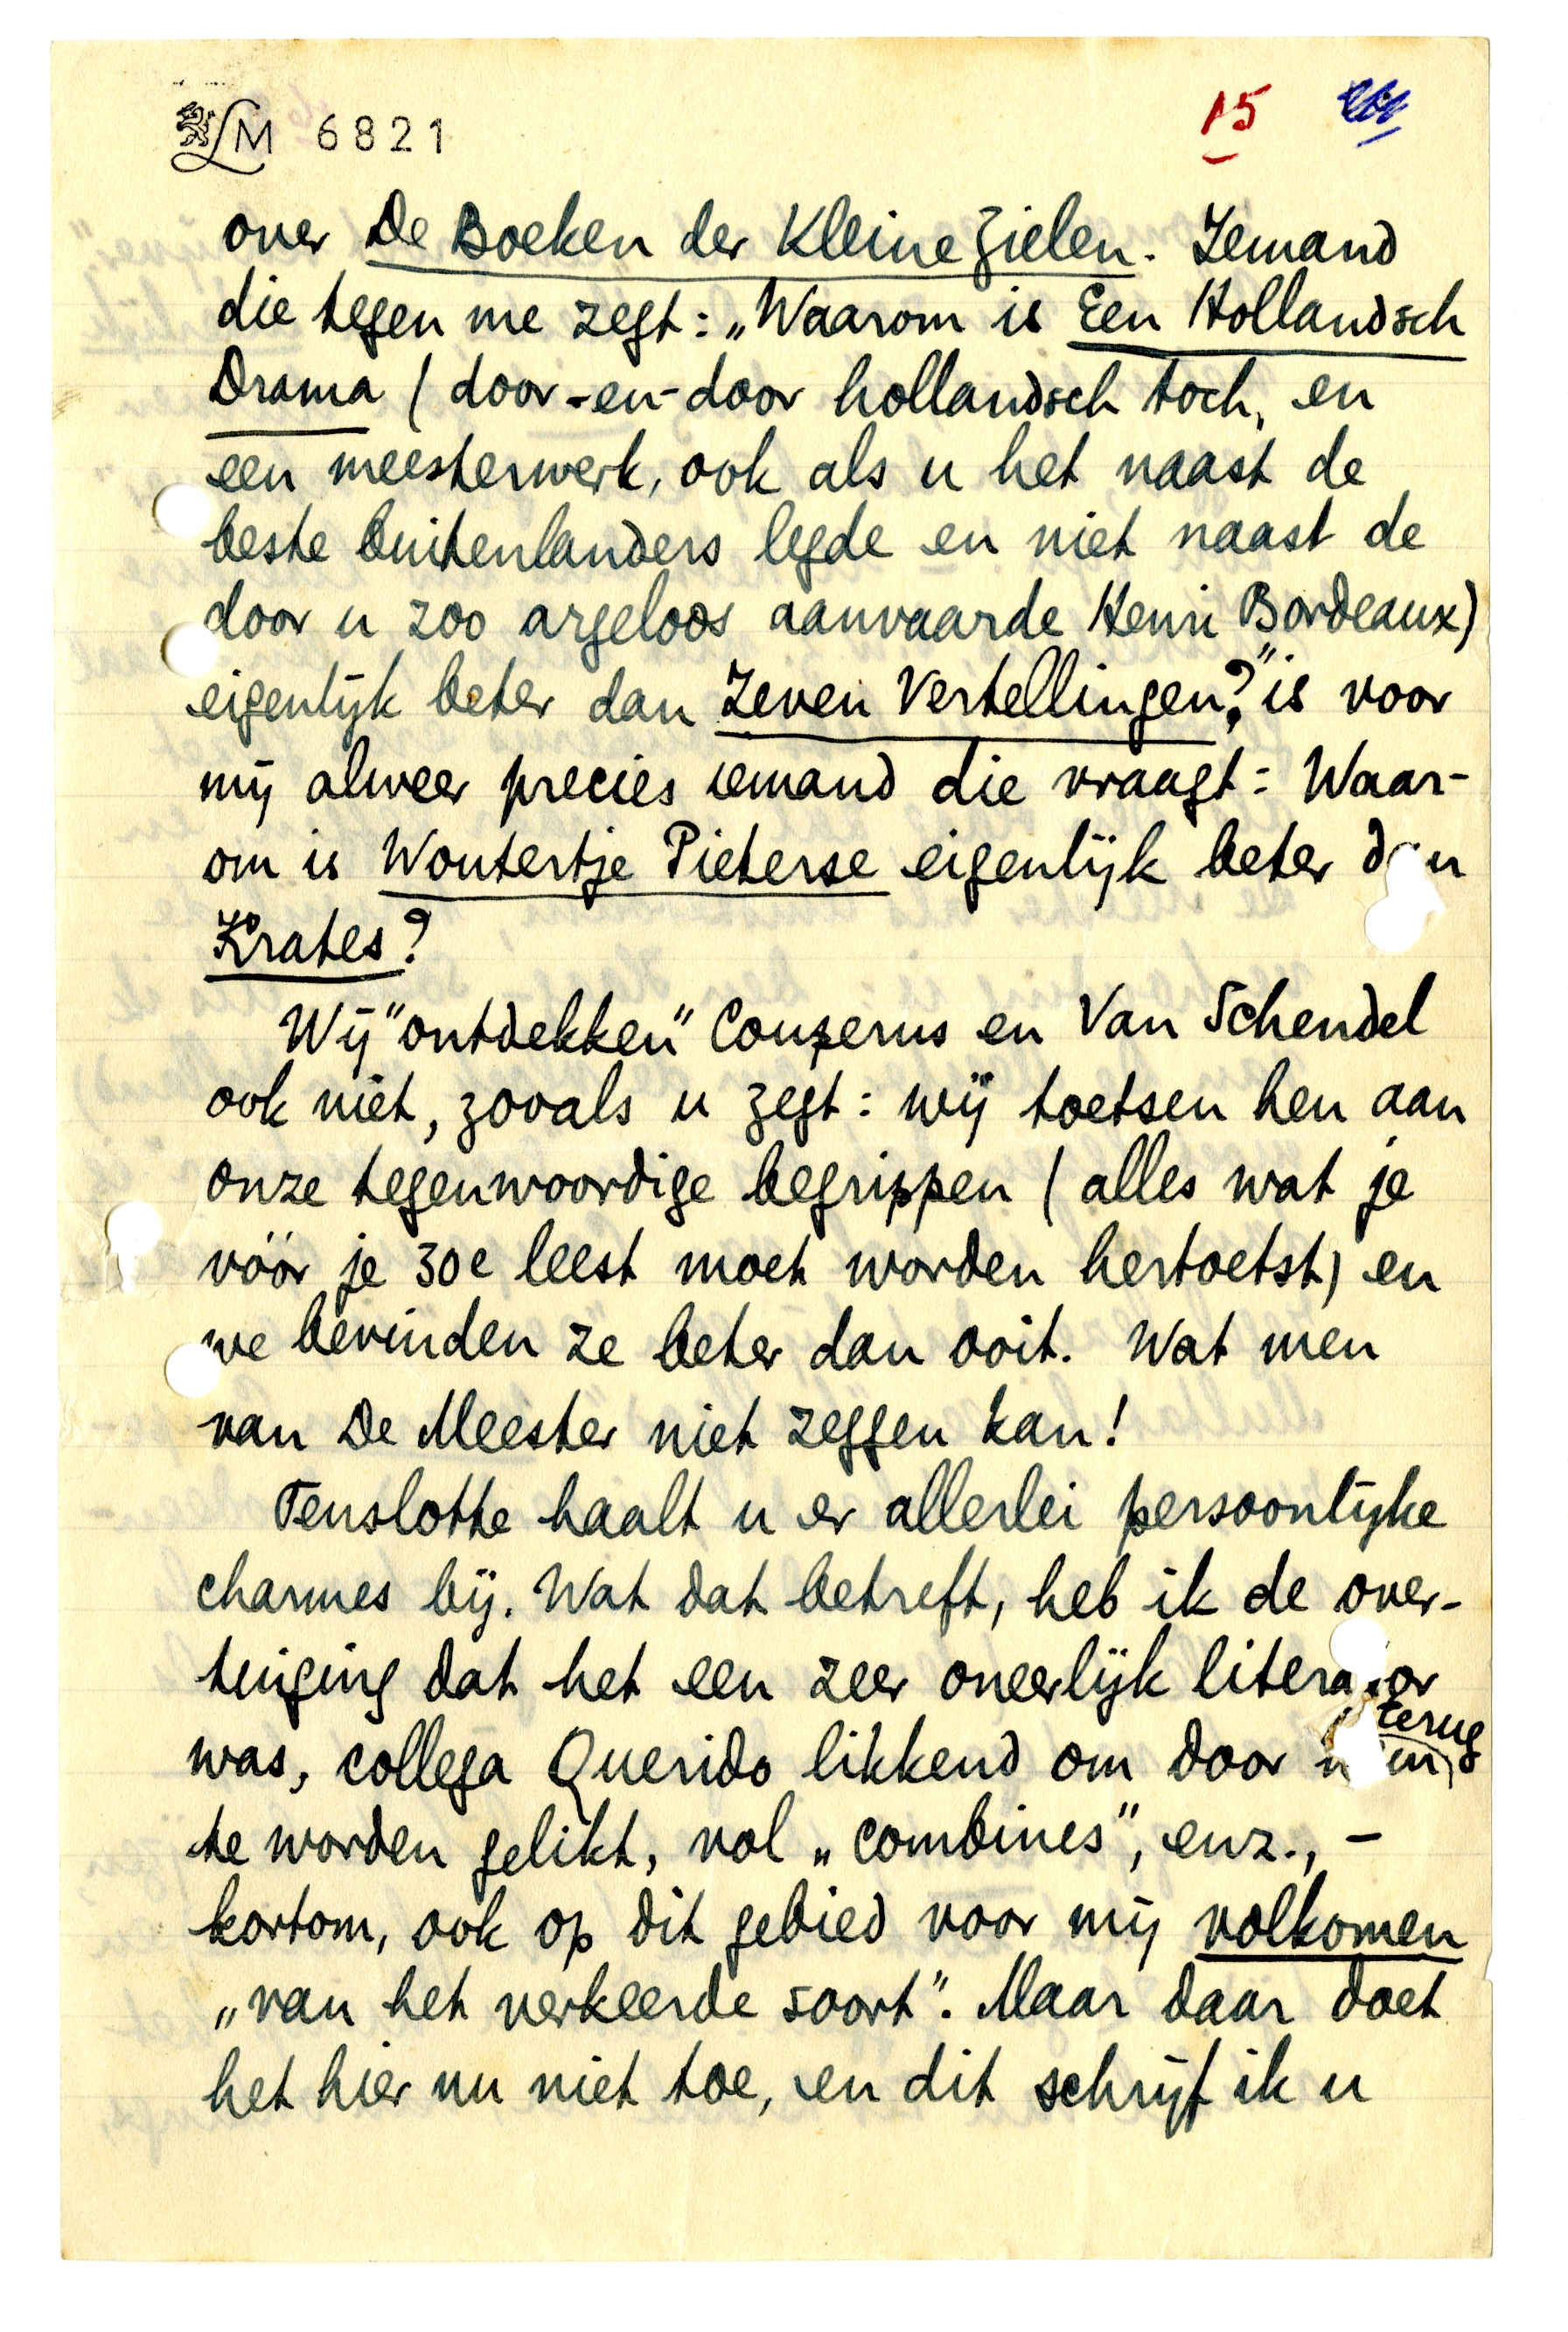 LM 6821
15
over De Boeken der Kleine Zielen. Iemand
die tegen me zegt: „Waarom is Een Hollandsch
Drama (door-en-door hollandsch toch, en
een meesterwerk, ook als u het naast de
beste buitenlanders legde en niet naast de
door u zoo argeloos aanvaarde Henri Bordeaux)
eigenlijk beter dan Zeven Vertellingen?" is voor
mij alweer precies iemand die vraagt: Waar-
om is Woutertje Pieterse eigenlijk beter dan
Krates?
Wij "ontdekken" Couperus en Van Schendel
ook niet, zooals u zegt: wij toetsen hen aan
onze tegenwoordige begrippen (alles wat je
vóór je 30e leest moet worden hertoetst) en
we bevinden ze beter dan ooit. Wat men
van De Meester niet zeggen kan!
Tenslotte haalt u er allerlei persoonlijke
charmes bij. Wat dat betreft, heb ik de over-
tuiging dat het een zeer oneerlijk literator
terug
was, collega Querido likkend om door
te worden gelikt, vol „combines", enz., -
kortom, ook op dit gebied voor mij volkomen
„van het verkeerde soort". Maar daar doet
het hier nu niet toe, en dit schrijf ik u